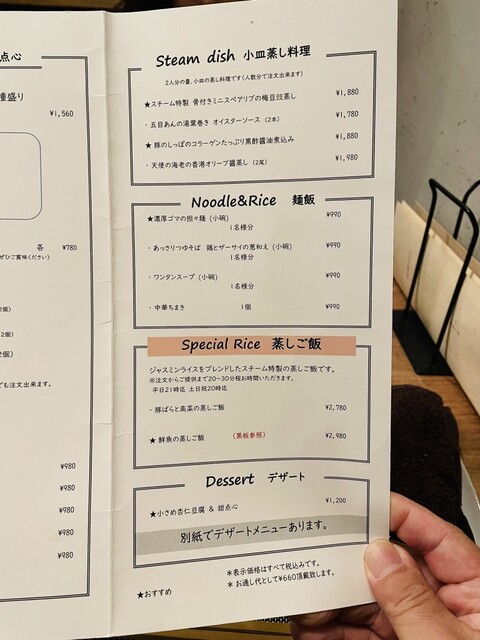 点心
種盛り
¥1,560
各 ¥780
ぜひご賞味ください)
2個)
2個)
2個)
でも注文出来ます。
¥980
¥980
¥980
¥980
¥980
Steam dish 小皿蒸し料理
2人分の量、小皿の蒸し料理です(人数分で注文出来ます)
★スチーム特製 骨付きミニスペアリブの梅豆豉蒸し ¥1,880
・五目あんの湯葉巻き オイスターソース (2本) ¥1,780
★ 豚のしっぽのコラーゲンたっぷり黒酢醤油煮込み ¥1,880
・天使の海老の香港オリーブ醤蒸し (2尾) ¥1,980
Noodle&Rice 麺飯
★濃厚ゴマの担々麺 (小碗) ¥990
1名様分
・あっさりつゆそば 鶏とザーサイの葱和え (小碗) ¥990
1名様分
・ワンタンスープ (小碗) ¥990
1名様分
・中華ちまき 1個 ¥990
Special Rice 蒸しご飯
ジャスミンライスをブレンドしたスチーム特製の蒸しご飯です。
※注文からご提供まで20~30分程お時間いただきます。
平日21時迄 土日祝20時迄
・豚ばらと高菜の蒸しご飯 ¥2,780
★ 鮮魚の蒸しご飯 (黒板参照) ¥2,980
Dessert デザート
★小さめ杏仁豆腐 & 甜点心 ¥1,200
別紙でデザートメニューあります。
＊表示価格はすべて税込みです。
＊お通し代として¥660頂戴致します。
★おすすめ